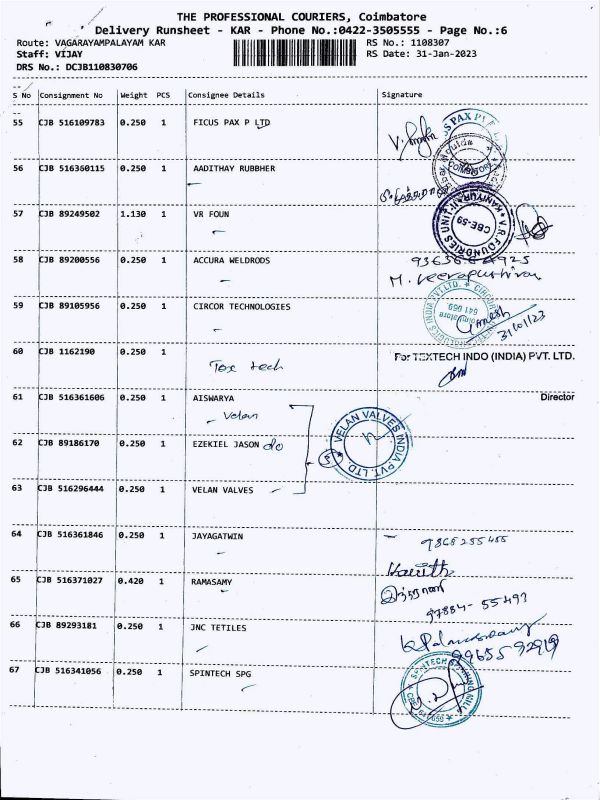 THE PROFESSIONAL COURIERS, Coimbatore
Delivery Runsheet - KAR - Phone No.:0422-3505555 - Page No.:6
Route: VAGARAYAMPALAYAM KAR RS No.: 1108307
Staff: VIJAY RS Date: 31-Jan-2023
DRS No.: DCJB110830706
S No Consignment No Weight PCS Consignee Details Signature
55 CJB 516109783 0.250 1 FICUS PAX P LTD
56 CJB 516360115 0.250 1 AADITHAY RUBBHER
57 CJB 89249502 1.130 1 VR FOUN
V.R. FOUNDRIES UNIT-II KANIYUR CBE-59
58 CJB 89200556 0.250 1 ACCURA WELDRODS
59 CJB 89105956 0.250 1 CIRCOR TECHNOLOGIES
Ganesh
31/01/23
60 CJB 1162190 0.250 1 For TEXTECH INDO (INDIA) PVT. LTD.
Tex tech
61 CJB 516361606 0.250 1 AISWARYA Director
Velan
62 CJB 89186170 0.250 1 EZEKIEL JASON do
VELAN VALVES INDIA PVT. LTD
5
63 CJB 516296444 0.250 1 VELAN VALVES
64 CJB 516361846 0.250 1 JAYAGATWIN
65 CJB 516371027 0.420 1 RAMASAMY
97884-55497
66 CJB 89293181 0.250 1 JNC TETILES
99655 92919
67 CJB 516341056 0.250 1 SPINTECH SPG